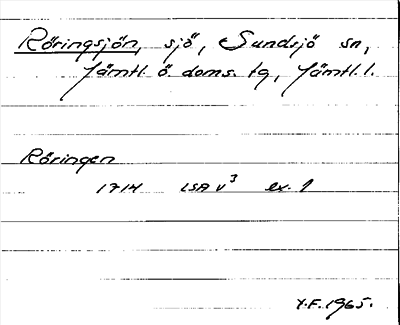 Röringsjön, sjö, Sundsjö sn,
Jämtl. ö. doms. tg, Jämtl. l.
Röringen
1714 LSA V³ ex. 1
Y.F. 1965.